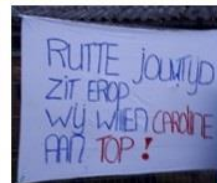 RUTTE JOUW TIJD
ZIT EROP
WIJ WILLEN CAROLINE
AAN TOP!